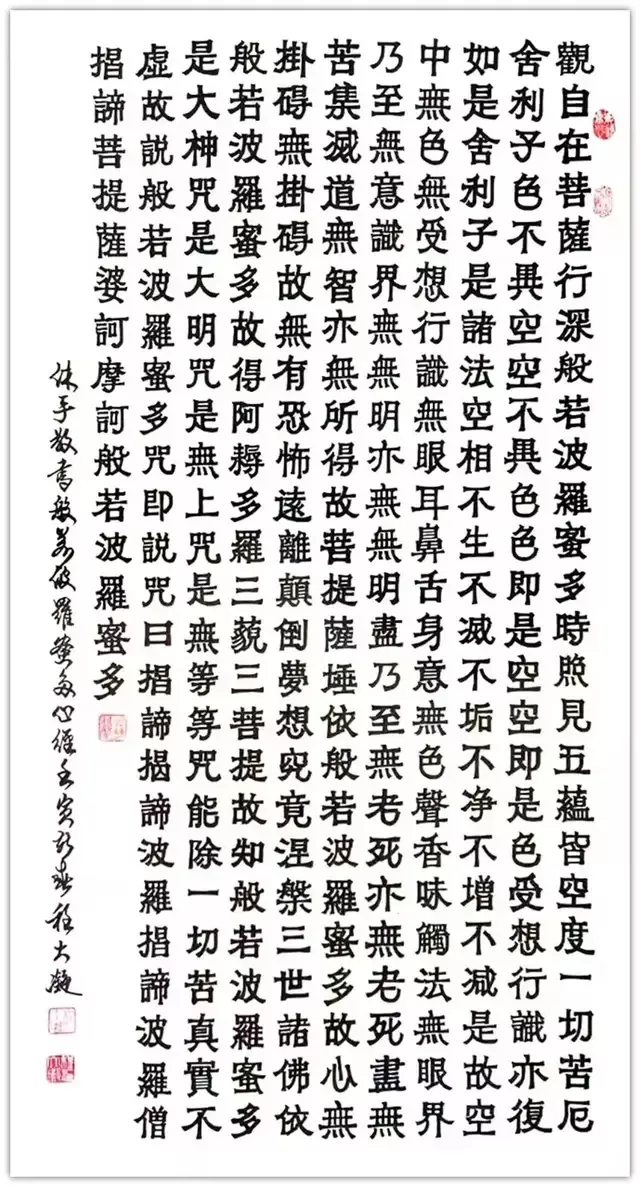 觀自在菩薩行深般若波羅蜜多時照見五蘊皆空度一切苦厄
舍利子色不異空空不異色色即是空空即是色受想行識亦復
如是舍利子是諸法空相不生不滅不垢不净不增不减是故空
中無色無受想行識無眼耳鼻舌身意無色聲香味觸法無眼界
乃至無意識界無無明亦無無明盡乃至無老死亦無老死盡無
苦集滅道無智亦無所得故菩提薩埵依般若波羅蜜多故心無
掛碍無掛碍故無有恐怖遠離顛倒夢想究竟涅槃三世諸佛依
般若波羅蜜多故得阿耨多羅三藐三菩提故知般若波羅蜜多
是大神咒是大明咒是無上咒是無等等咒能除一切苦真實不
虛故説般若波羅蜜多咒即説咒曰揭諦揭諦波羅揭諦波羅僧
揭諦菩提薩婆訶摩訶般若波羅蜜多
敬書般若波羅蜜多心經壬寅新春程大